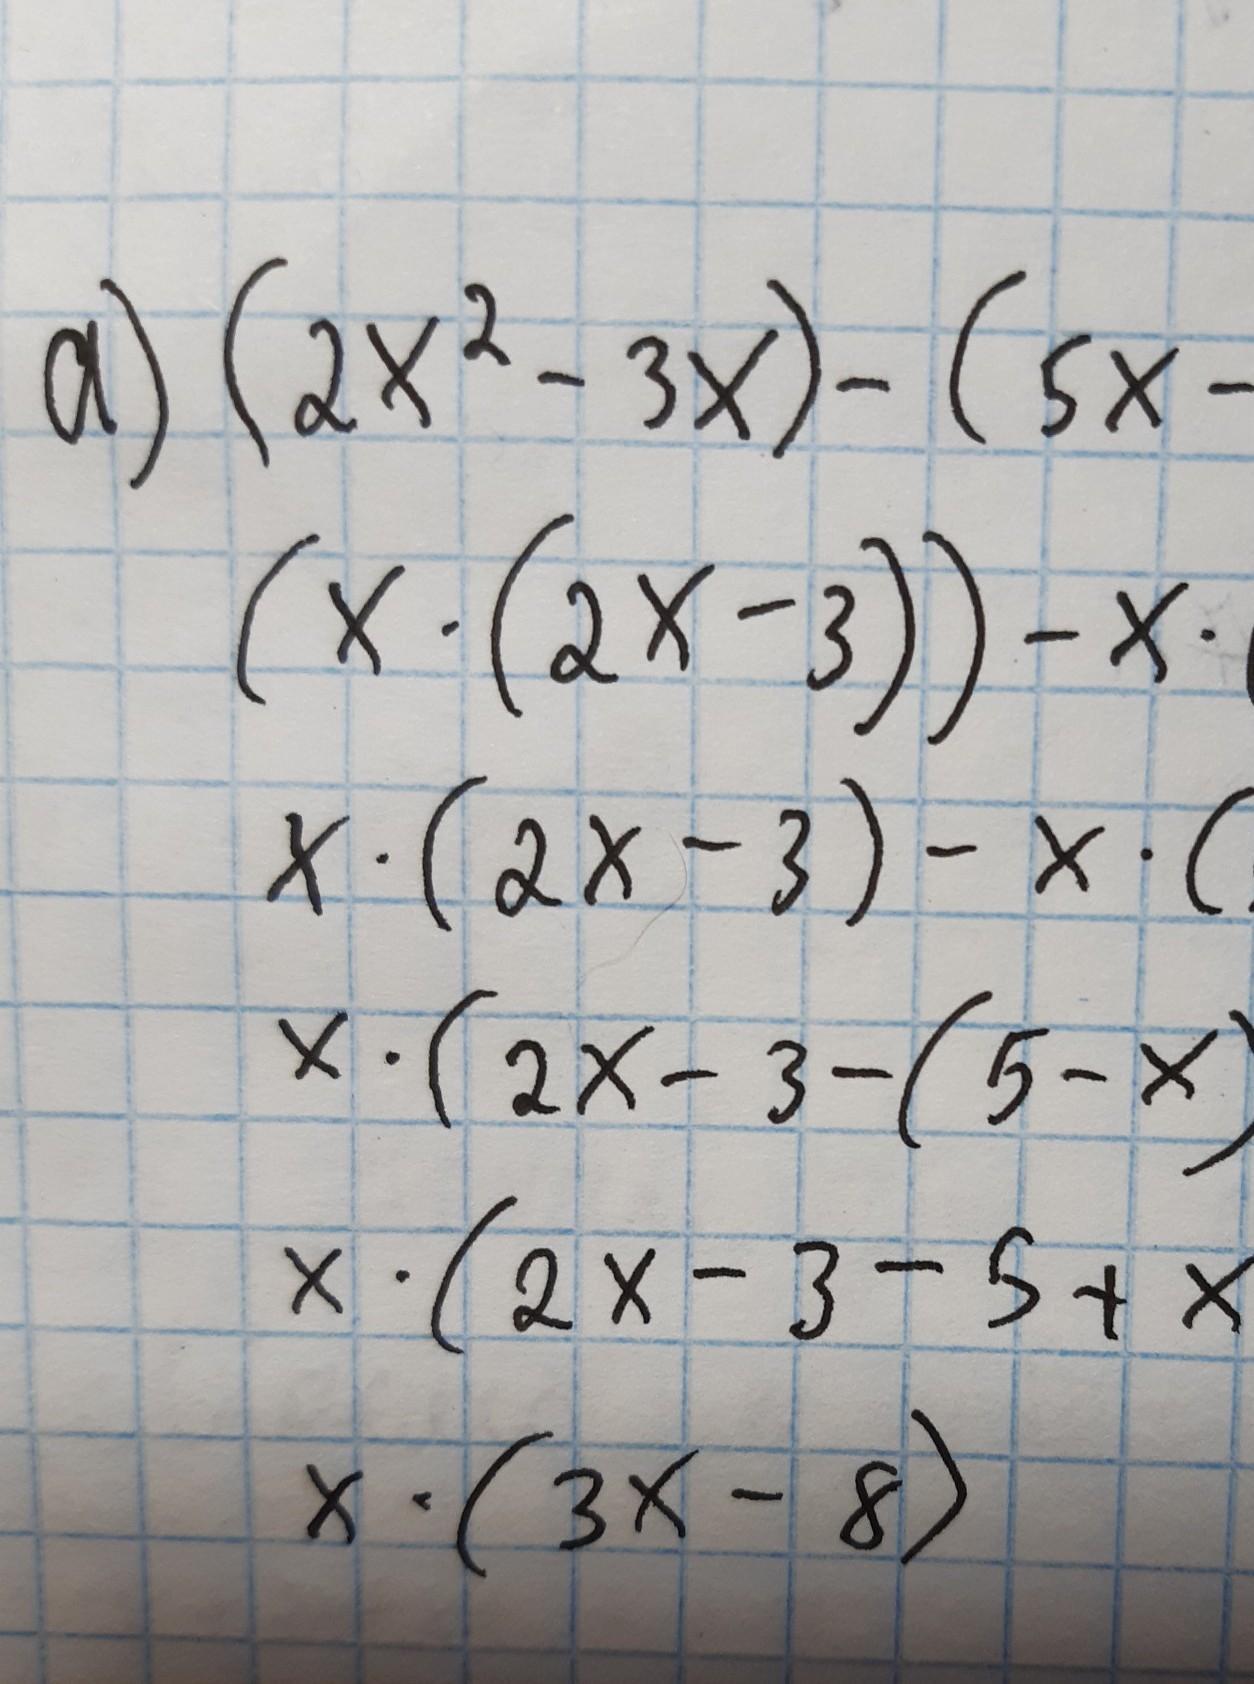 a) (2x² - 3x) - (5x -
(x · (2x - 3)) - x · (
x · (2x - 3) - x · (
x · (2x - 3 - (5 - x)
x · (2x - 3 - 5 + x
x · (3x - 8)